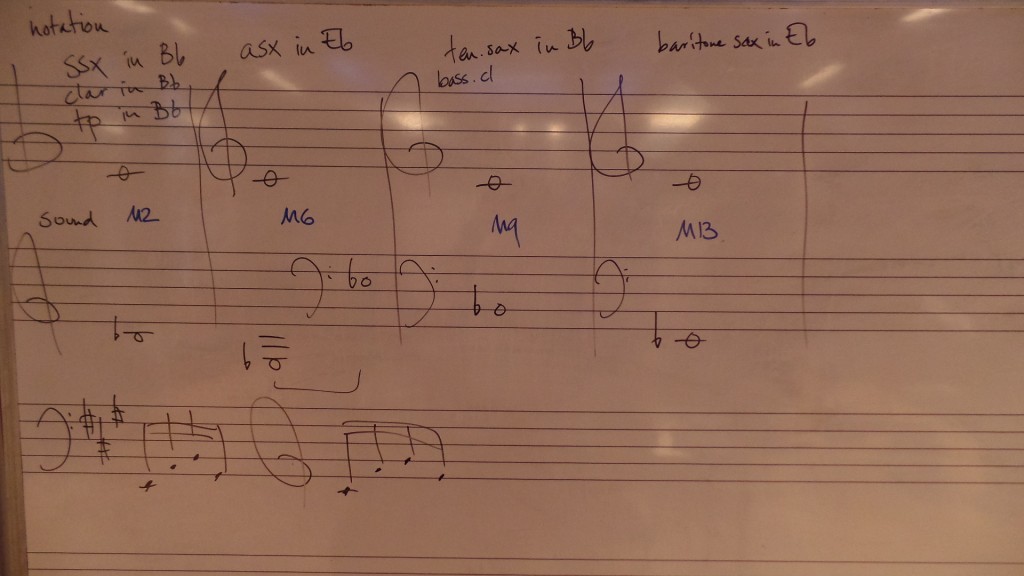 notation
ssx in Bb
clar in Bb
tp in Bb
asx in Eb
ten. sax in Bb
bass. cl
baritone sax in Eb
sound M2 M6 M9 M13